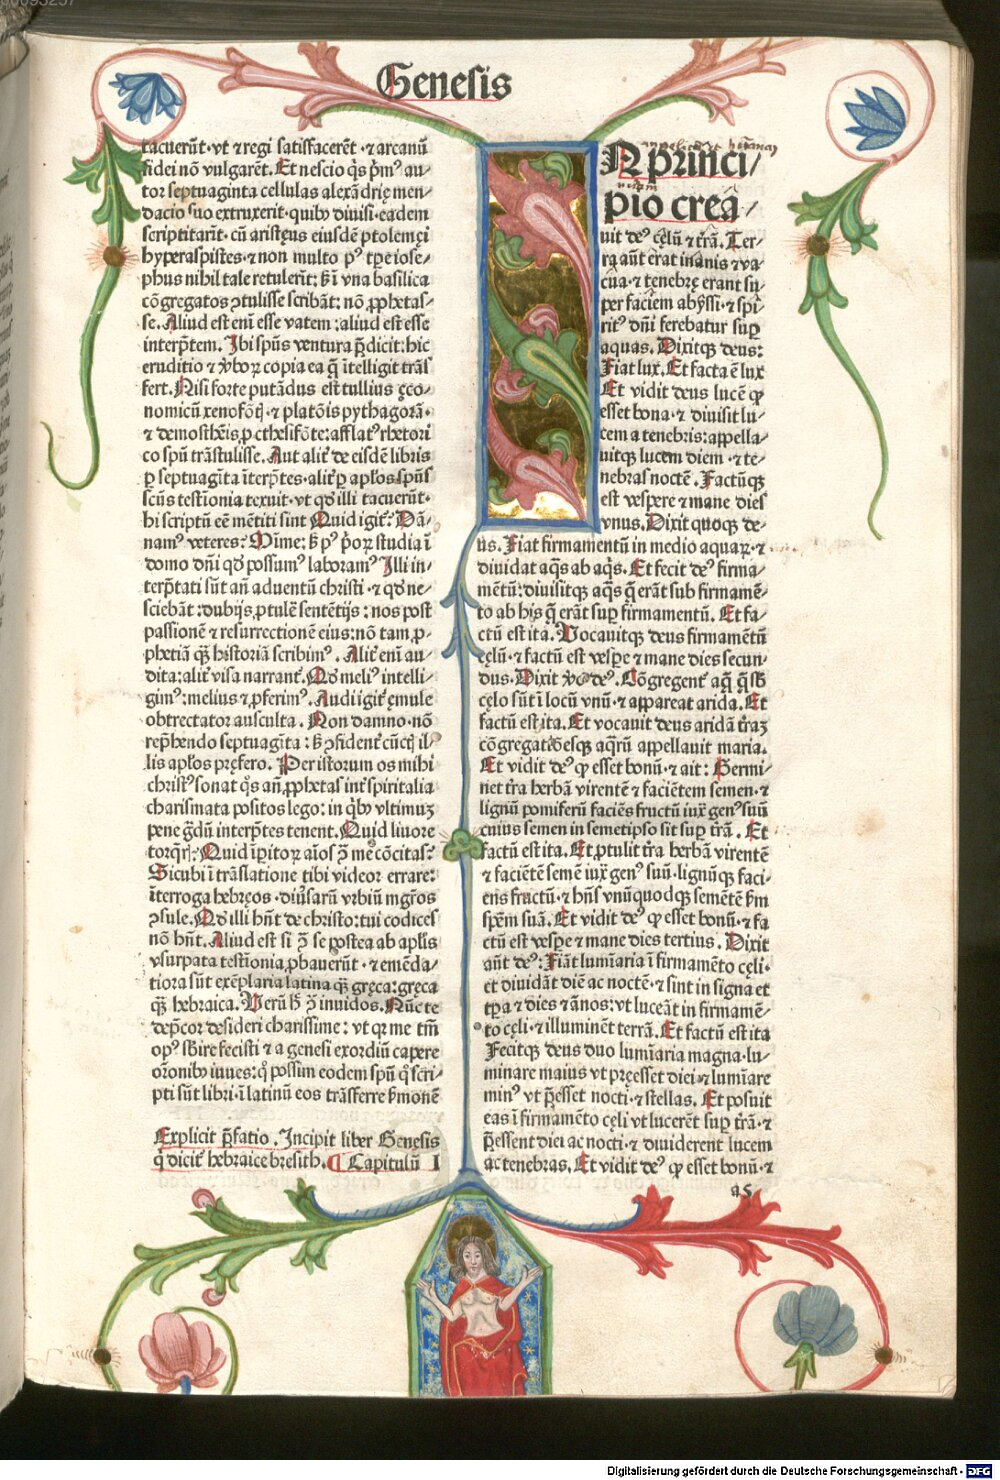 Genesis
tacuerūt · vt ⁊ regi satisfacerēt · ⁊ arcanū
fidei nō vulgarēt. Et nescio q̇s pͥmꝰ au-
tor septuaginta cellulas alexādrię men-
dacio suo extruxerit · quibꝰ diuisi · eadem
scriptitarīt · cū aristęus eiusdē ptolemęi
hyperaspistes · ⁊ non multo pꝰ tp̄e iose-
phus nihil tale retulerīt: s̄ i vna basilica
cōgregatos ꝯtulisse scribāt: nō ꝓphetas-
se. Aliud est eni esse vatem: aliud est esse
interp̄tem. Ibi spūs ventura p̄dicit: hic
eruditio ⁊ v̓boꝝ copia ea q̄ itelligit trās
fert. Nisi forte putādus est tullius ęco-
nomicū xenofōtꝭ · ⁊ platōis pythagorā ·
⁊ demosthēis ꝓ cthesifōte: afflatꝰ rhetori
co spū trāstulisse. Aut alit̓ de eisdē libris
ꝑ septuagīta īterp̄tes · alit̓ ꝑ apl̄os spūs
scūs testīonia texuit · vt qd̓ illi tacuerūt ·
hi scriptū eē mētiti sint Quid igit̓? Dā-
namꝰ veteres? Mīme: s̄ pꝰ pͥoꝝ studia ī
domo dn̄i qd̓ possumꝰ laboramꝰ Illi in-
terp̄tati sūt añ aduentū christi · ⁊ qd̓ ne-
sciebāt: dubijs ꝓtulē sentētijs: nos post
passionē ⁊ resurrectionē eius: nō tam ꝓ-
phetiā q̄ꝫ historiā scribimꝰ. Alit̓ eni au-
dita: alit̓ visa narrant̓. Qd̓ meliꝰ intelli-
gimꝰ: melius ⁊ ꝓferimꝰ. Audi igit̓ ęmule
obtrectator ausculta. Non damno · nō
rep̄hendo septuagīta: s̄ ꝯfident̓ cūctꝭ il-
lis apl̄os pręfero. Per istorum os mihi
christꝰ sonat q̇s añ ꝓphetas int̓ spiritalia
charismata positos lego: in qͥbꝰ vltimuꝫ
pene gͣdū interp̄tes tenent. Quid liuore
torq̄ris? Quid īpitoꝝ aīos ꝯͣ me cōcitas?
Sicubi i trāslatione tibi videor errare:
īterroga hebręos · diu̓saꝝ vrbiū mgr̄os
ꝯsule. Qd̓ illi hñt de christo: tui codices
nō hñt. Aliud est si ꝯͣ se postea ab apl̄is
vsurpata testīonia ꝓbauerūt · ⁊ emēda-
tiora sūt exēplaria latina q̄ꝫ gręca: gręca
q̄ꝫ hebraica. Verū h̄ ꝯͣ inuidos. Nūc te
dep̄cor desideri charissime: vt qꝛ me tm̄
opꝰ sb̓ire fecisti ⁊ a genesi exordiū capere
orōnibꝰ iuues: qͦ possim eodem spū qͦ scri-
pti sūt libri · i latinū eos trāsferre s̓monē
Explicit p̄fatio. Incipit liber Genesis
q̇ dicit̓ hebraice bresith. Capitulū I
N princi/
pio crea/
uit deꝰ cęlū ⁊ t̓rā. Ter-
ra aūt erat inanis ⁊ va-
cua · ⁊ tenebrę erant su-
per faciem abyssi · ⁊ spi-
ritꝰ dn̄i ferebatur suꝑ
aquas. Dixitqꝫ deus:
Fiat lux. Et facta ē lux
Et vidit deus lucē ꝙ
esset bona · ⁊ diuisit lu-
cem a tenebris: appella-
uitqꝫ lucem diem · ⁊ te-
nebras noctē. Factūqꝫ
est vespere ⁊ mane dies
vnus. Dixit quoqꝫ de-
us. Fiat firmamentū in medio aquaꝝ · ⁊
diuidat aq̄s ab aq̄s. Et fecit deꝰ firma-
mētū: diuisitqꝫ aq̄s q̄ erāt sub firmamē-
to ab his q̄ erāt suꝑ firmamentū. Et fa-
ctū est ita. Vocauitqꝫ deus firmamētū
cęlū · ⁊ factū est vesꝑe ⁊ mane dies secun-
dus. Dixit v̓o deꝰ. Cōgregent̓ aq̄ q̄ sb̓
cęlo sūt i locū vnū · ⁊ appareat arida. Et
factū est ita. Et vocauit deus aridā t̓raꝫ
cōgregatōesqꝫ aq̄rū appellauit maria.
Et vidit deꝰ ꝙ esset bonū · ⁊ ait: Germi-
net t̓ra herbā virentē ⁊ faciētem semen · ⁊
lignū pomiferū faciēs fructū iuxͣ genꝰ suū
cuius semen in semetipso sit suꝑ t̓rā. Et
factū est ita. Et ꝓtulit t̓ra herbā virentē
⁊ faciētē semē iuxͣ genꝰ suū · lignūqꝫ faci-
ens fructū · ⁊ hñs vnūquodqꝫ semētē s̓m
spēm suā. Et vidit deꝰ ꝙ esset bonū · ⁊ fa
ctū est vesꝑe ⁊ mane dies tertius. Dixit
aūt deꝰ: Fiāt lumīaria i firmamēto cęli ·
et diuidāt diē ac noctē · ⁊ sint in signa et
tꝑa ⁊ dies ⁊ ānos: vt luceāt in firmamē-
to cęli · ⁊ illuminēt terrā. Et factū est ita
Fecitqꝫ deus duo lumīaria magna · lu-
minare maius vt pręesset diei · ⁊ lumīare
minꝰ vt p̄esset nocti · ⁊ stellas. Et posuit
eas i firmamēto cęli vt lucerēt suꝑ t̓rā · ⁊
p̄essent diei ac nocti · ⁊ diuiderent lucem
ac tenebras. Et vidit deꝰ ꝙ esset bonū · ⁊
a 5
Digitalisierung gefördert durch die Deutsche Forschungsgemeinschaft - DFG